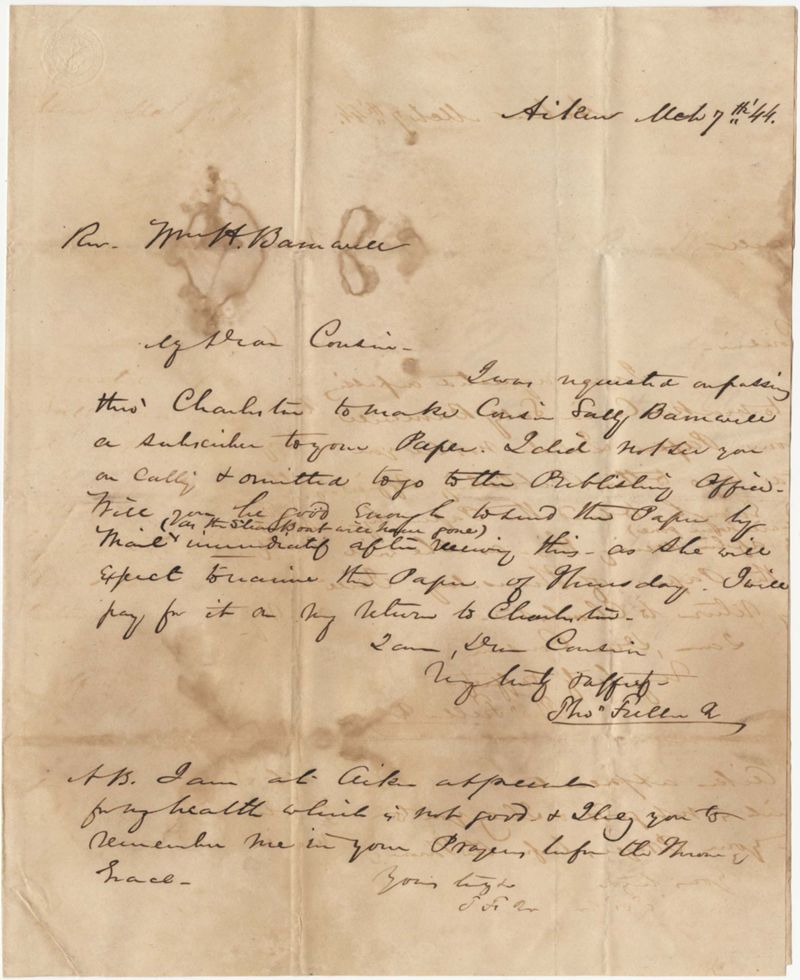 Aiken Mch 7th '44.
Rev. Wm H. Barnwell
My Dear Cousin -
I was requested on passing
thro' Charleston to make Cousin Sally Barnwell
a subscriber to your Paper. I did not see you
on & omitted to go to the Publishing Office -
Will you be good Enough to send the Paper by
(as the Steam Boat will have gone)
Mail immediately after receiving this - as she will
Expect to receive the Paper of Thursday. I will
pay for it on my return to Charleston -
I am, Dear Cousin
Very truly & affy -
Thos Fuller
NB. I am at Aiken at present
for my health which is not good & I beg you to
remember me in your Prayers before the Throne of
Grace -
Yours truly